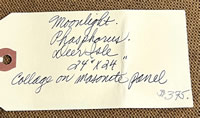 Moonlight.
Phosphorus.
Deer Isle
24" x 24"
Collage on Masonite panel
$375.